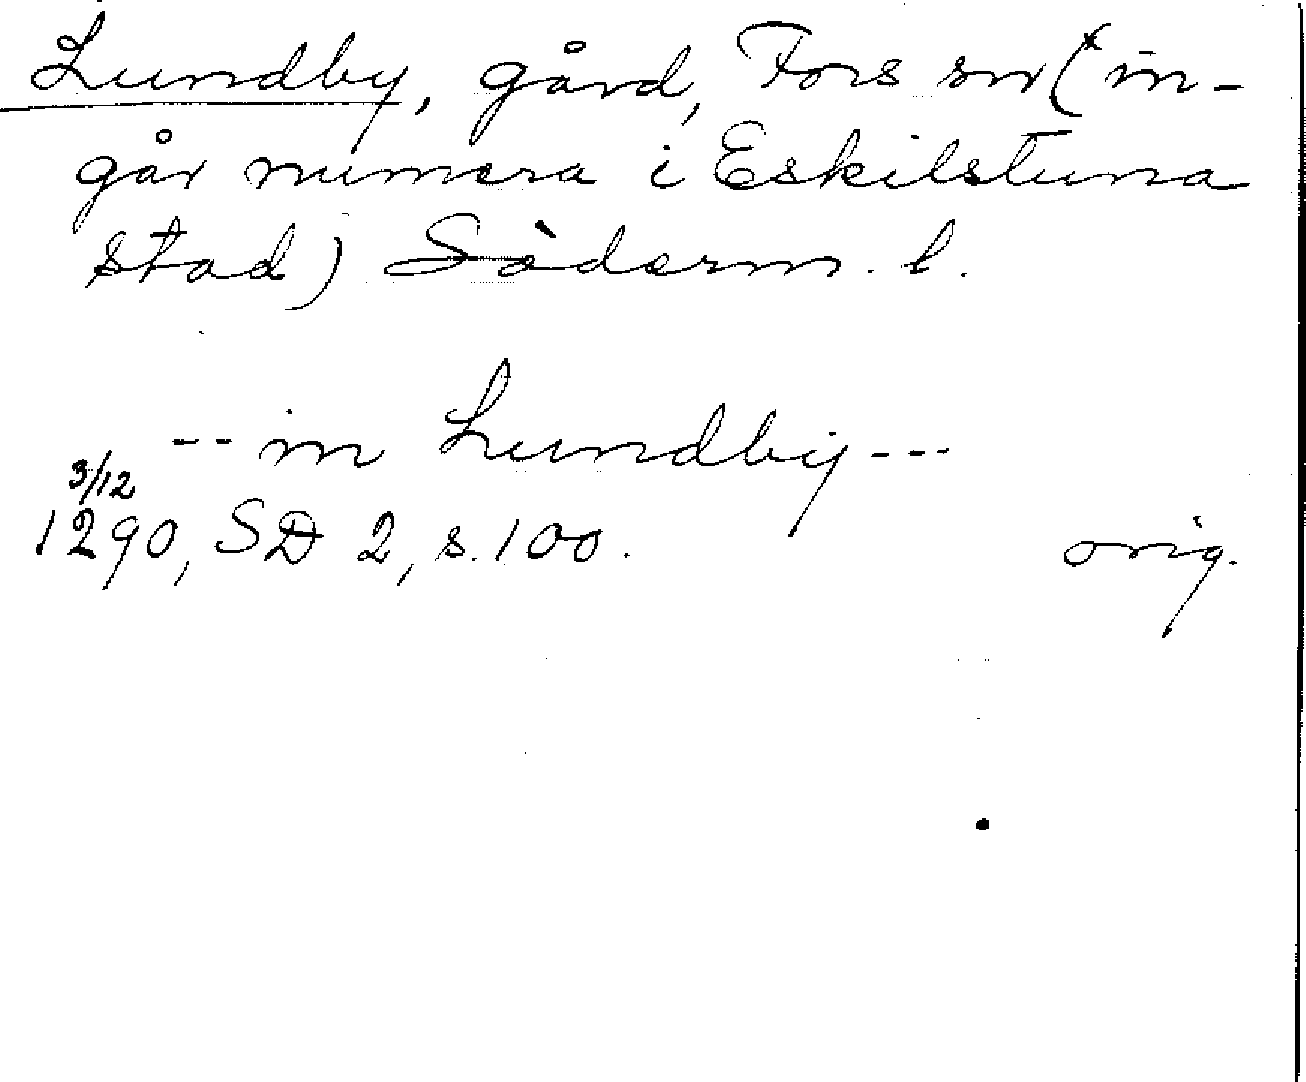 Lundby, gård, Fors sn (in-
går numera i Eskilstuna
stad) Söderm. l.
-- in Lundby ---
3/12
1290, SD 2, s. 100. orig.